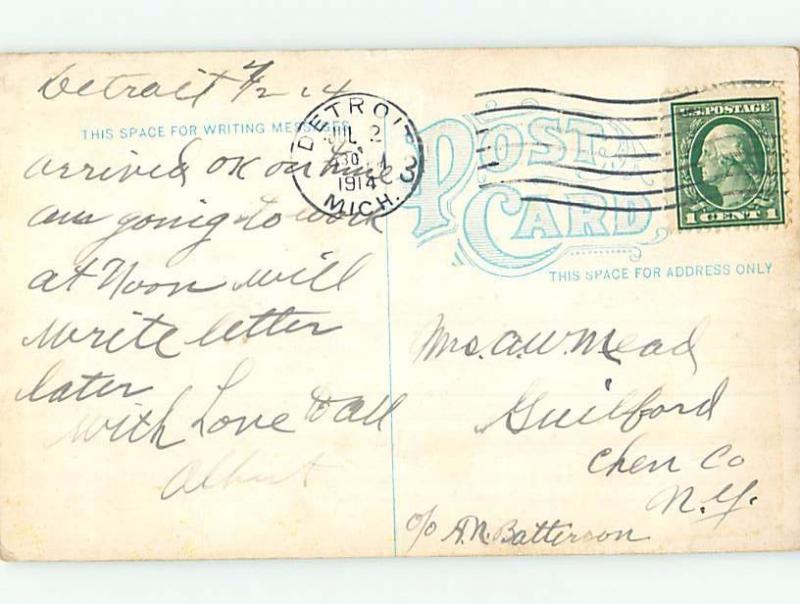 Detroit 7/2 14
THIS SPACE FOR WRITING MESSAGES
arrived OK on time
am going to work
at Noon will
write letter
later
with Love to all
Albert
DETROIT
MICH.
JUL 2
30
1914
3
POST CARD
U.S. POSTAGE
1 CENT 1
THIS SPACE FOR ADDRESS ONLY
Mrs. A.W. Mead
Guilford
Chen Co
N.Y.
c/o A.N. Batterson